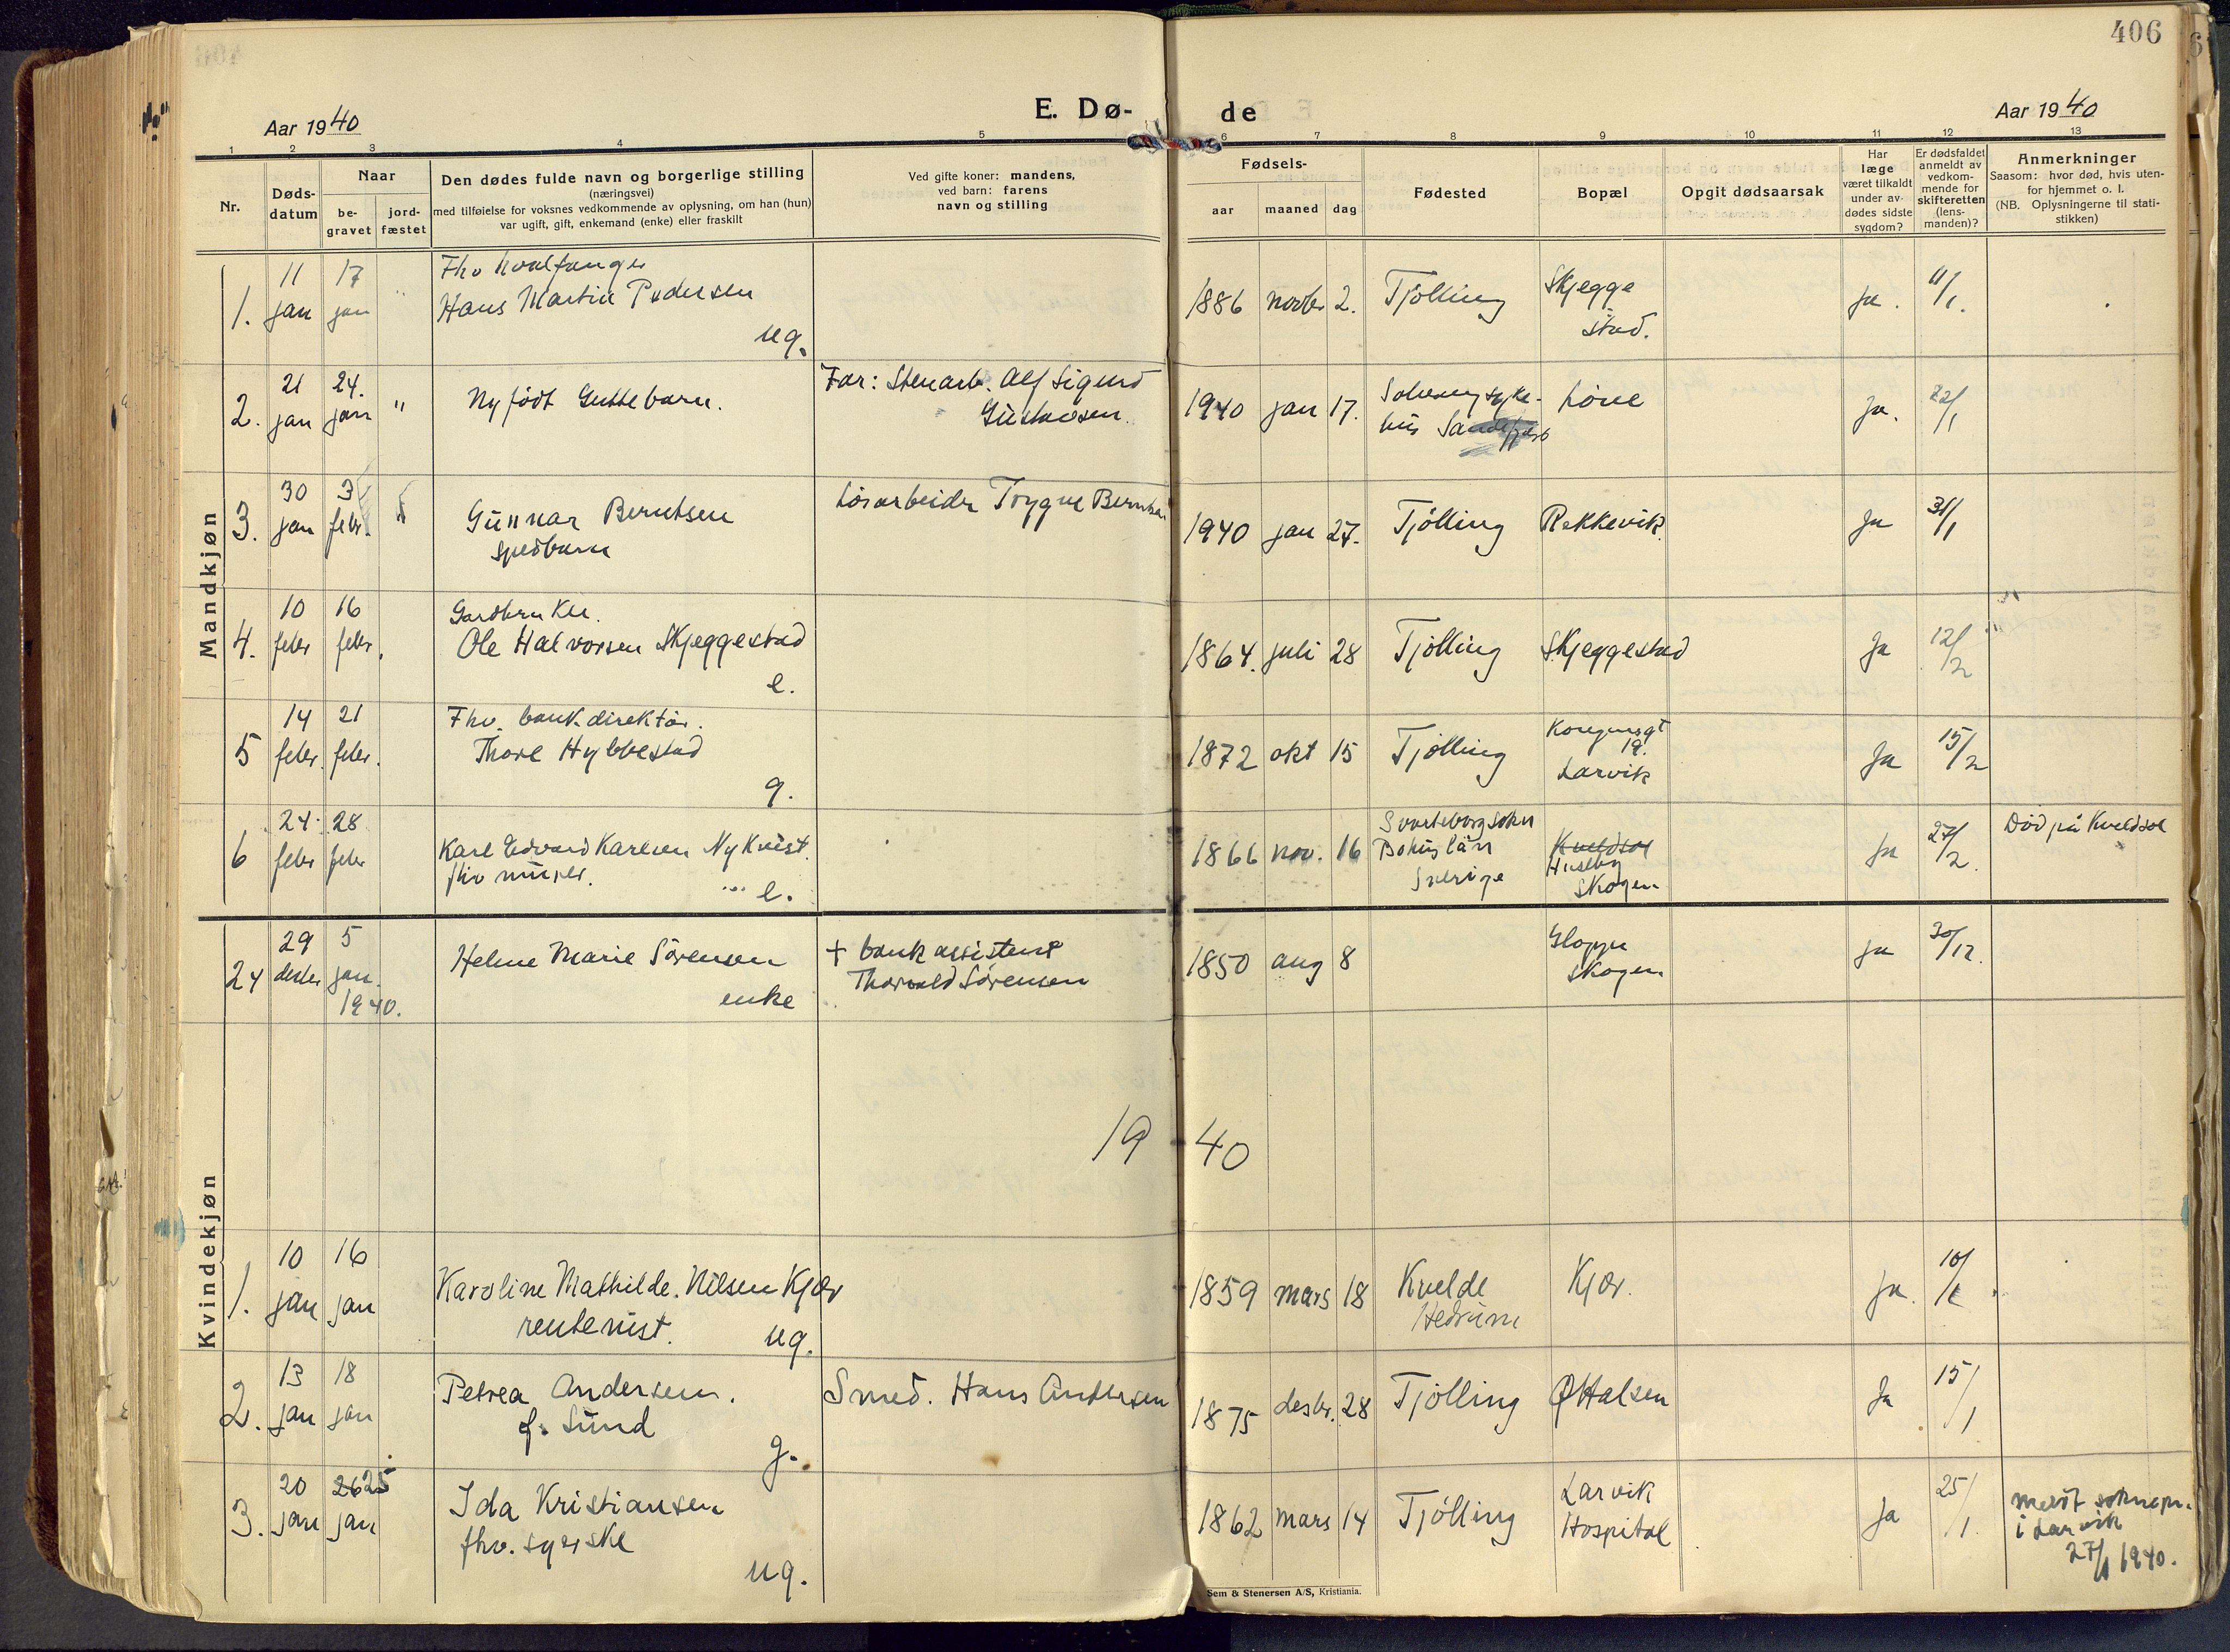 406
Aar 1940
E. Dø-
de
Aar 1940
1 2 3 4 5 6 7 8 9 10 11 12 13
Nr.
Døds-
datum
Naar
be-
gravet
jord-
fæstet
Den dødes fulde navn og borgerlige stilling
(næringsvei)
med tilføielse for voksnes vedkommende av oplysning, om han (hun)
var ugift, gift, enkemand (enke) eller fraskilt
Ved gifte koner: mandens,
ved barn: farens
navn og stilling
Fødsels-
aar
maaned
dag
Fødested
Bopæl
Opgit dødsaarsak
Har
læge
været tilkaldt
under av-
dødes sidste
sygdom?
Er dødsfaldet
anmeldt av
vedkom-
mende for
skifteretten
(lens-
manden)?
Anmerkninger
Saasom: hvor død, hvis uten-
for hjemmet o. l.
(NB. Oplysningerne til stati-
stikken)
Mandkjøn
1. 11 jan 17 jan
Fhv hvalfanger
Hans Martin Pedersen
ug.
1886 novbr 2. Tjölling
Skjegge
stad.
ja. 11/1.
2. 21 jan 24. jan "
Nyfödt Guttebarn.
Far: Stenarb. Alf Sigurd
Gustavsen.
1940 jan 17.
syke-
hus Sandefjord
Löve
ja. 22/1
3. 30 jan 3 febr.
Gunnar Berntsen
spedbarn
Lösarbeider Trygve Berntsen
1940 jan 27. Tjölling Rekkevik.
ja 31/1
4. 10 febr 16 febr.
Gardbruker.
Ole Halvorsen Skjeggestad
e.
1864. juli 28 Tjölling Skjeggestad
ja 12/2
5 14 febr. 21 febr.
Fhv. bankdirektör.
Thore Hybbestad
g.
1872 okt 15 Tjölling
Kongensgt
19.
Larvik
ja 15/2
6 24. febr 28 febr
Karl Edvard Karlsen Nykvist.
fhv murer.
e.
1866 nov. 16
Svarteborg sokn
Bohus län
Sverige
Kveldsol
Huseby
skogen
ja 27/2.
Död på Kveldsol
24 29 desbr 5 jan. 1940.
Helene Marie Sörensen
enke
+ bankassistent
Thorvald Sörensen
1850 aug 8
Gloppe
skogen
ja 30/12.
1940
Kvindekjøn
1. 10 jan 16 jan
Karoline Mathilde. Nilsen Kjær
rentenist. ug.
1859 mars 18
Kvelde
Hedrum
Kjær.
ja. 10/1
2. 13 jan 18 jan
Petrea Andersen.
f. Sund
g.
Smed. Hans Andersen
1875 desbr. 28 Tjölling Ø Halsen
ja 15/1
3. 20 jan 26 25 jan
Ida Kristiansen
fhv. syerske
ug.
1862 mars 14 Tjölling
Larvik
Hospital
ja 25/1.
meldt soknepr.
i Larvik
27/1 1940.
Sem & Stenersen A/S, Kristiania.